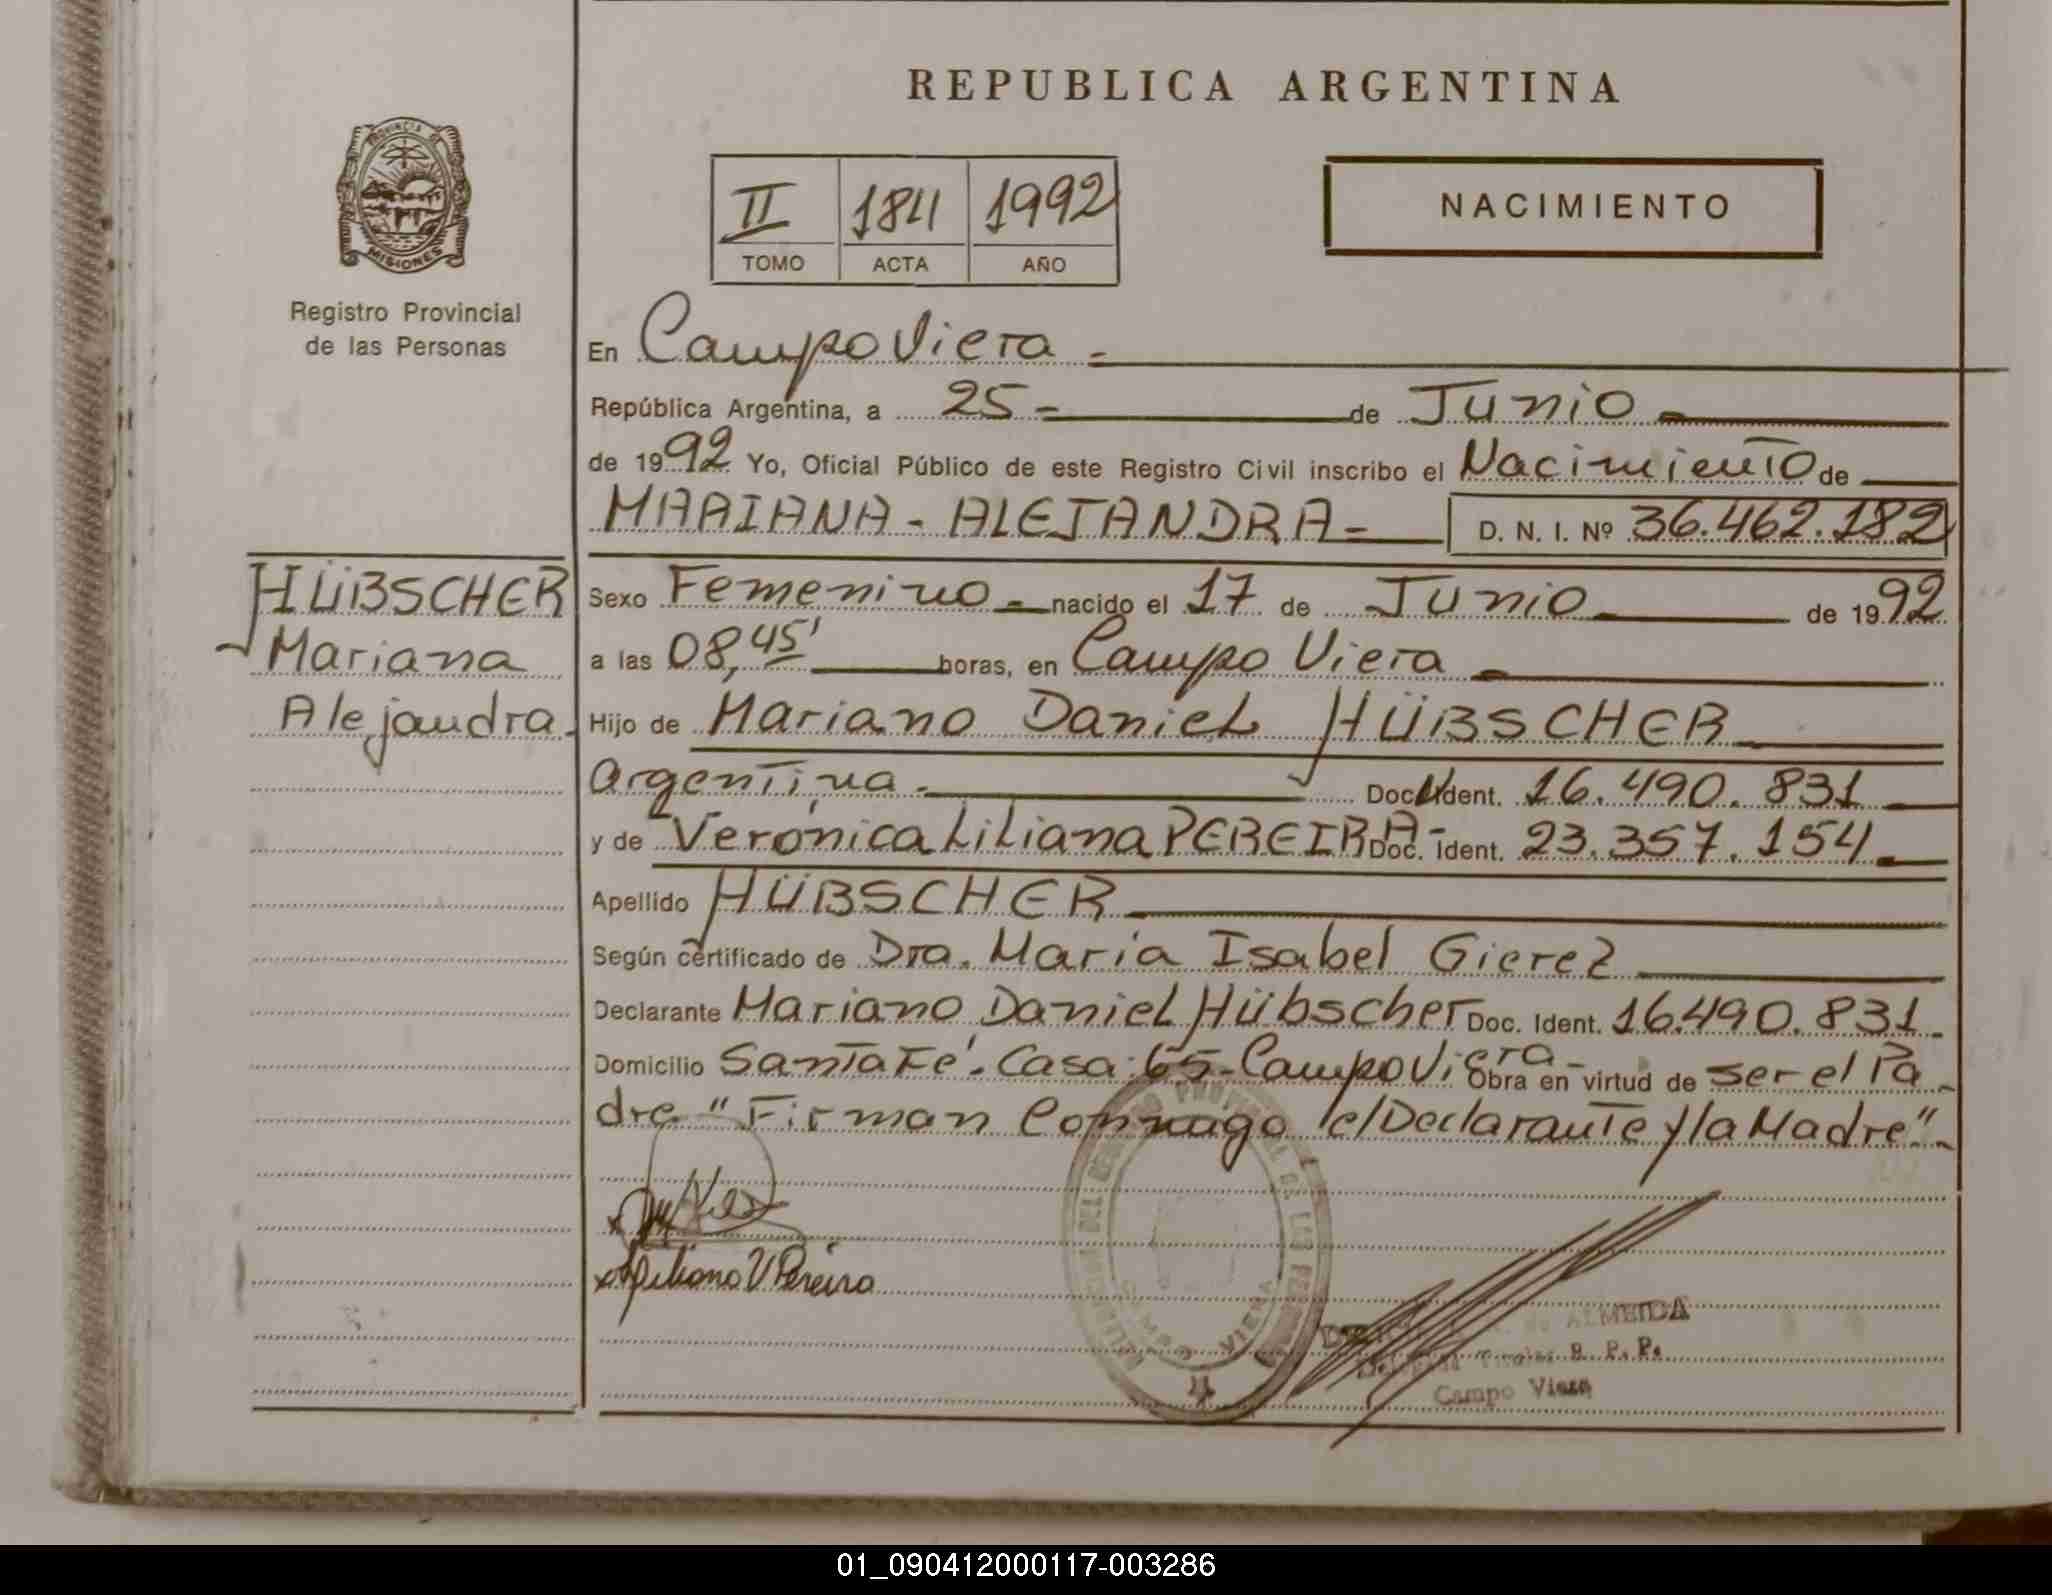 REPUBLICA ARGENTINA
PROVINCIA DE
MISIONES
Registro Provincial
de las Personas
II 184 1992
TOMO ACTA AÑO
NACIMIENTO
En Campo Viera =
República Argentina, a 25 = de Junio -
de 1992 Yo, Oficial Público de este Registro Civil inscribo el Nacimiento de
MARIANA - ALEJANDRA = D. N. I. Nº 36.462.182
HÜBSCHER
Mariana
Alejandra.
Sexo Femenino - nacido el 17 de Junio de 1992
a las 08,45' horas, en Campo Viera -
Hijo de Mariano Daniel HÜBSCHER
Argentina. Doc. Ident. 16.490.831
y de Verónica Liliana PEREIRA - Doc. Ident. 23.357.154
Apellido HÜBSCHER
Según certificado de Dra. María Isabel Gierez
Declarante Mariano Daniel Hübscher Doc. Ident. 16.490.831.
Domicilio Santa Fé. Casa: 65 - Campo Viera - Obra en virtud de ser el Pa
dre "Firman Conmigo el Declarante y la Madre".
Liliana V Pereira
CAMPO VIERA
ALMEIDA
R. P. P.
Campo Viera
01_090412000117-003286